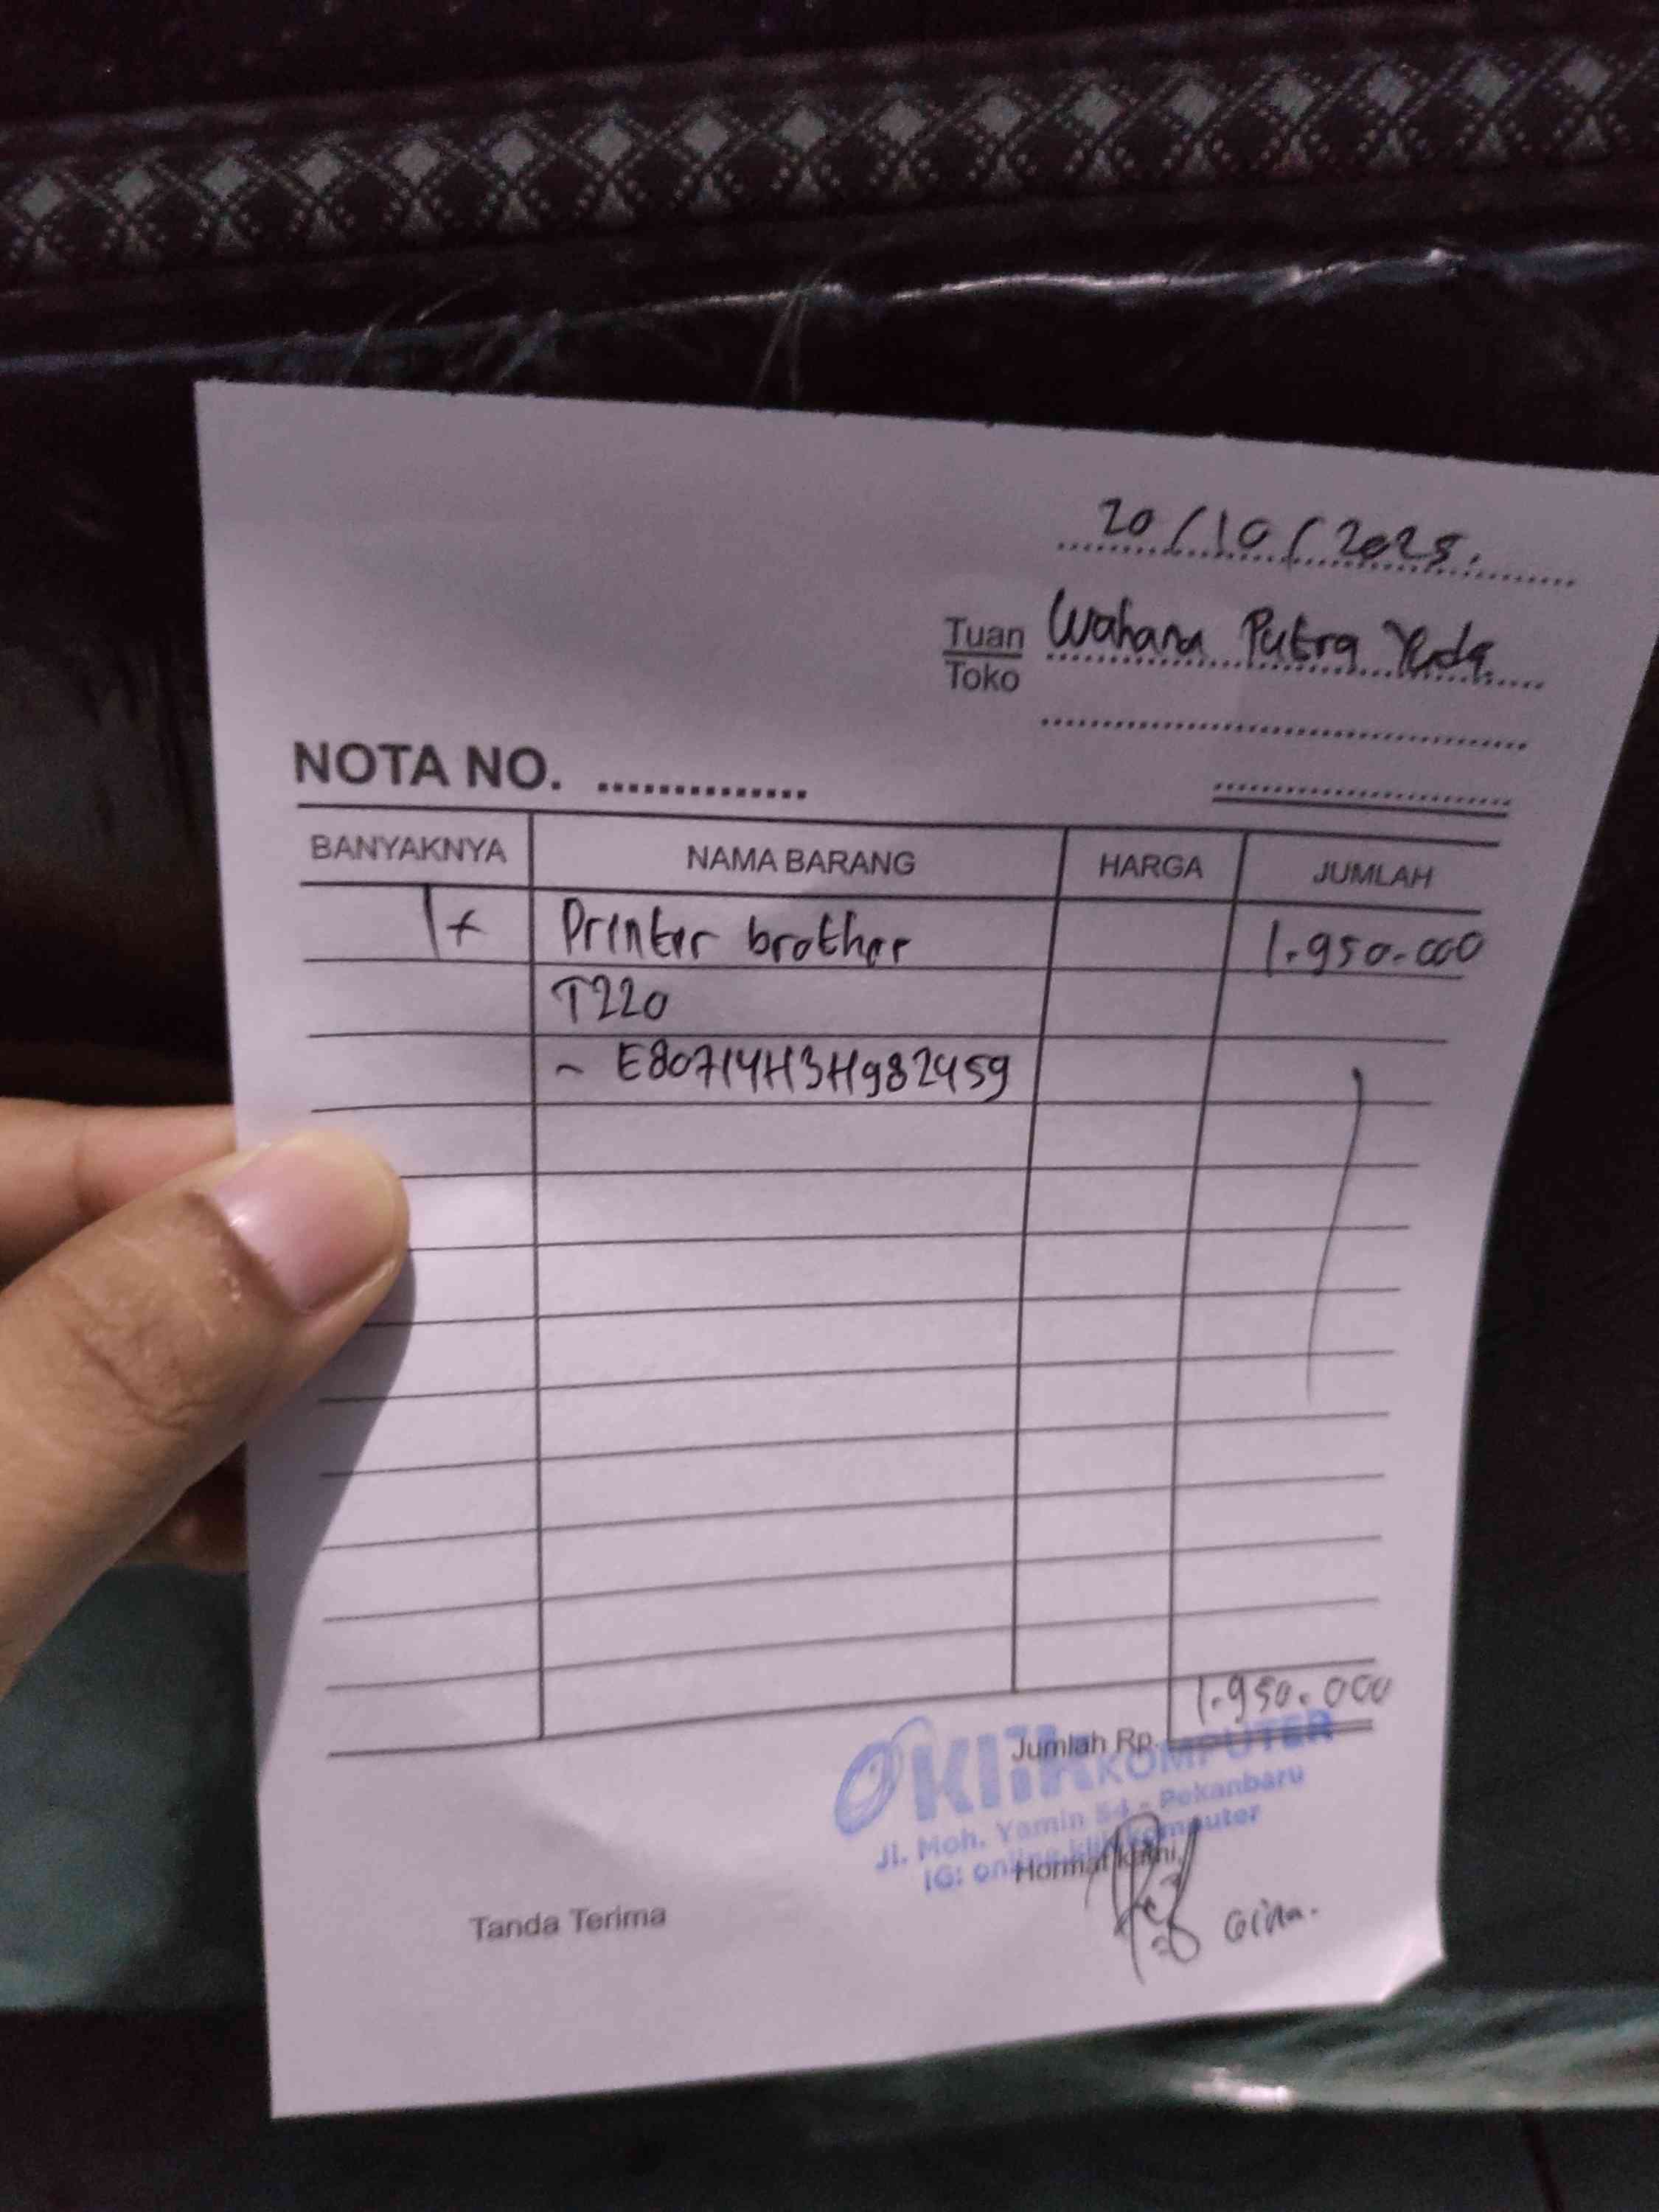 20/10/2025.
Tuan Wahana Putra Yuda
Toko
NOTA NO. ..............
BANYAKNYA NAMA BARANG HARGA JUMLAH
1x Printer brother 1.950.000
T220
- E80714H3H982459
1.950.000
Jumlah Rp.
KLIK KOMPUTER
Jl. Moh. Yamin 54 - Pekanbaru
IG: online.klikkomputer
Hormat kami,
Tanda Terima
Gina.